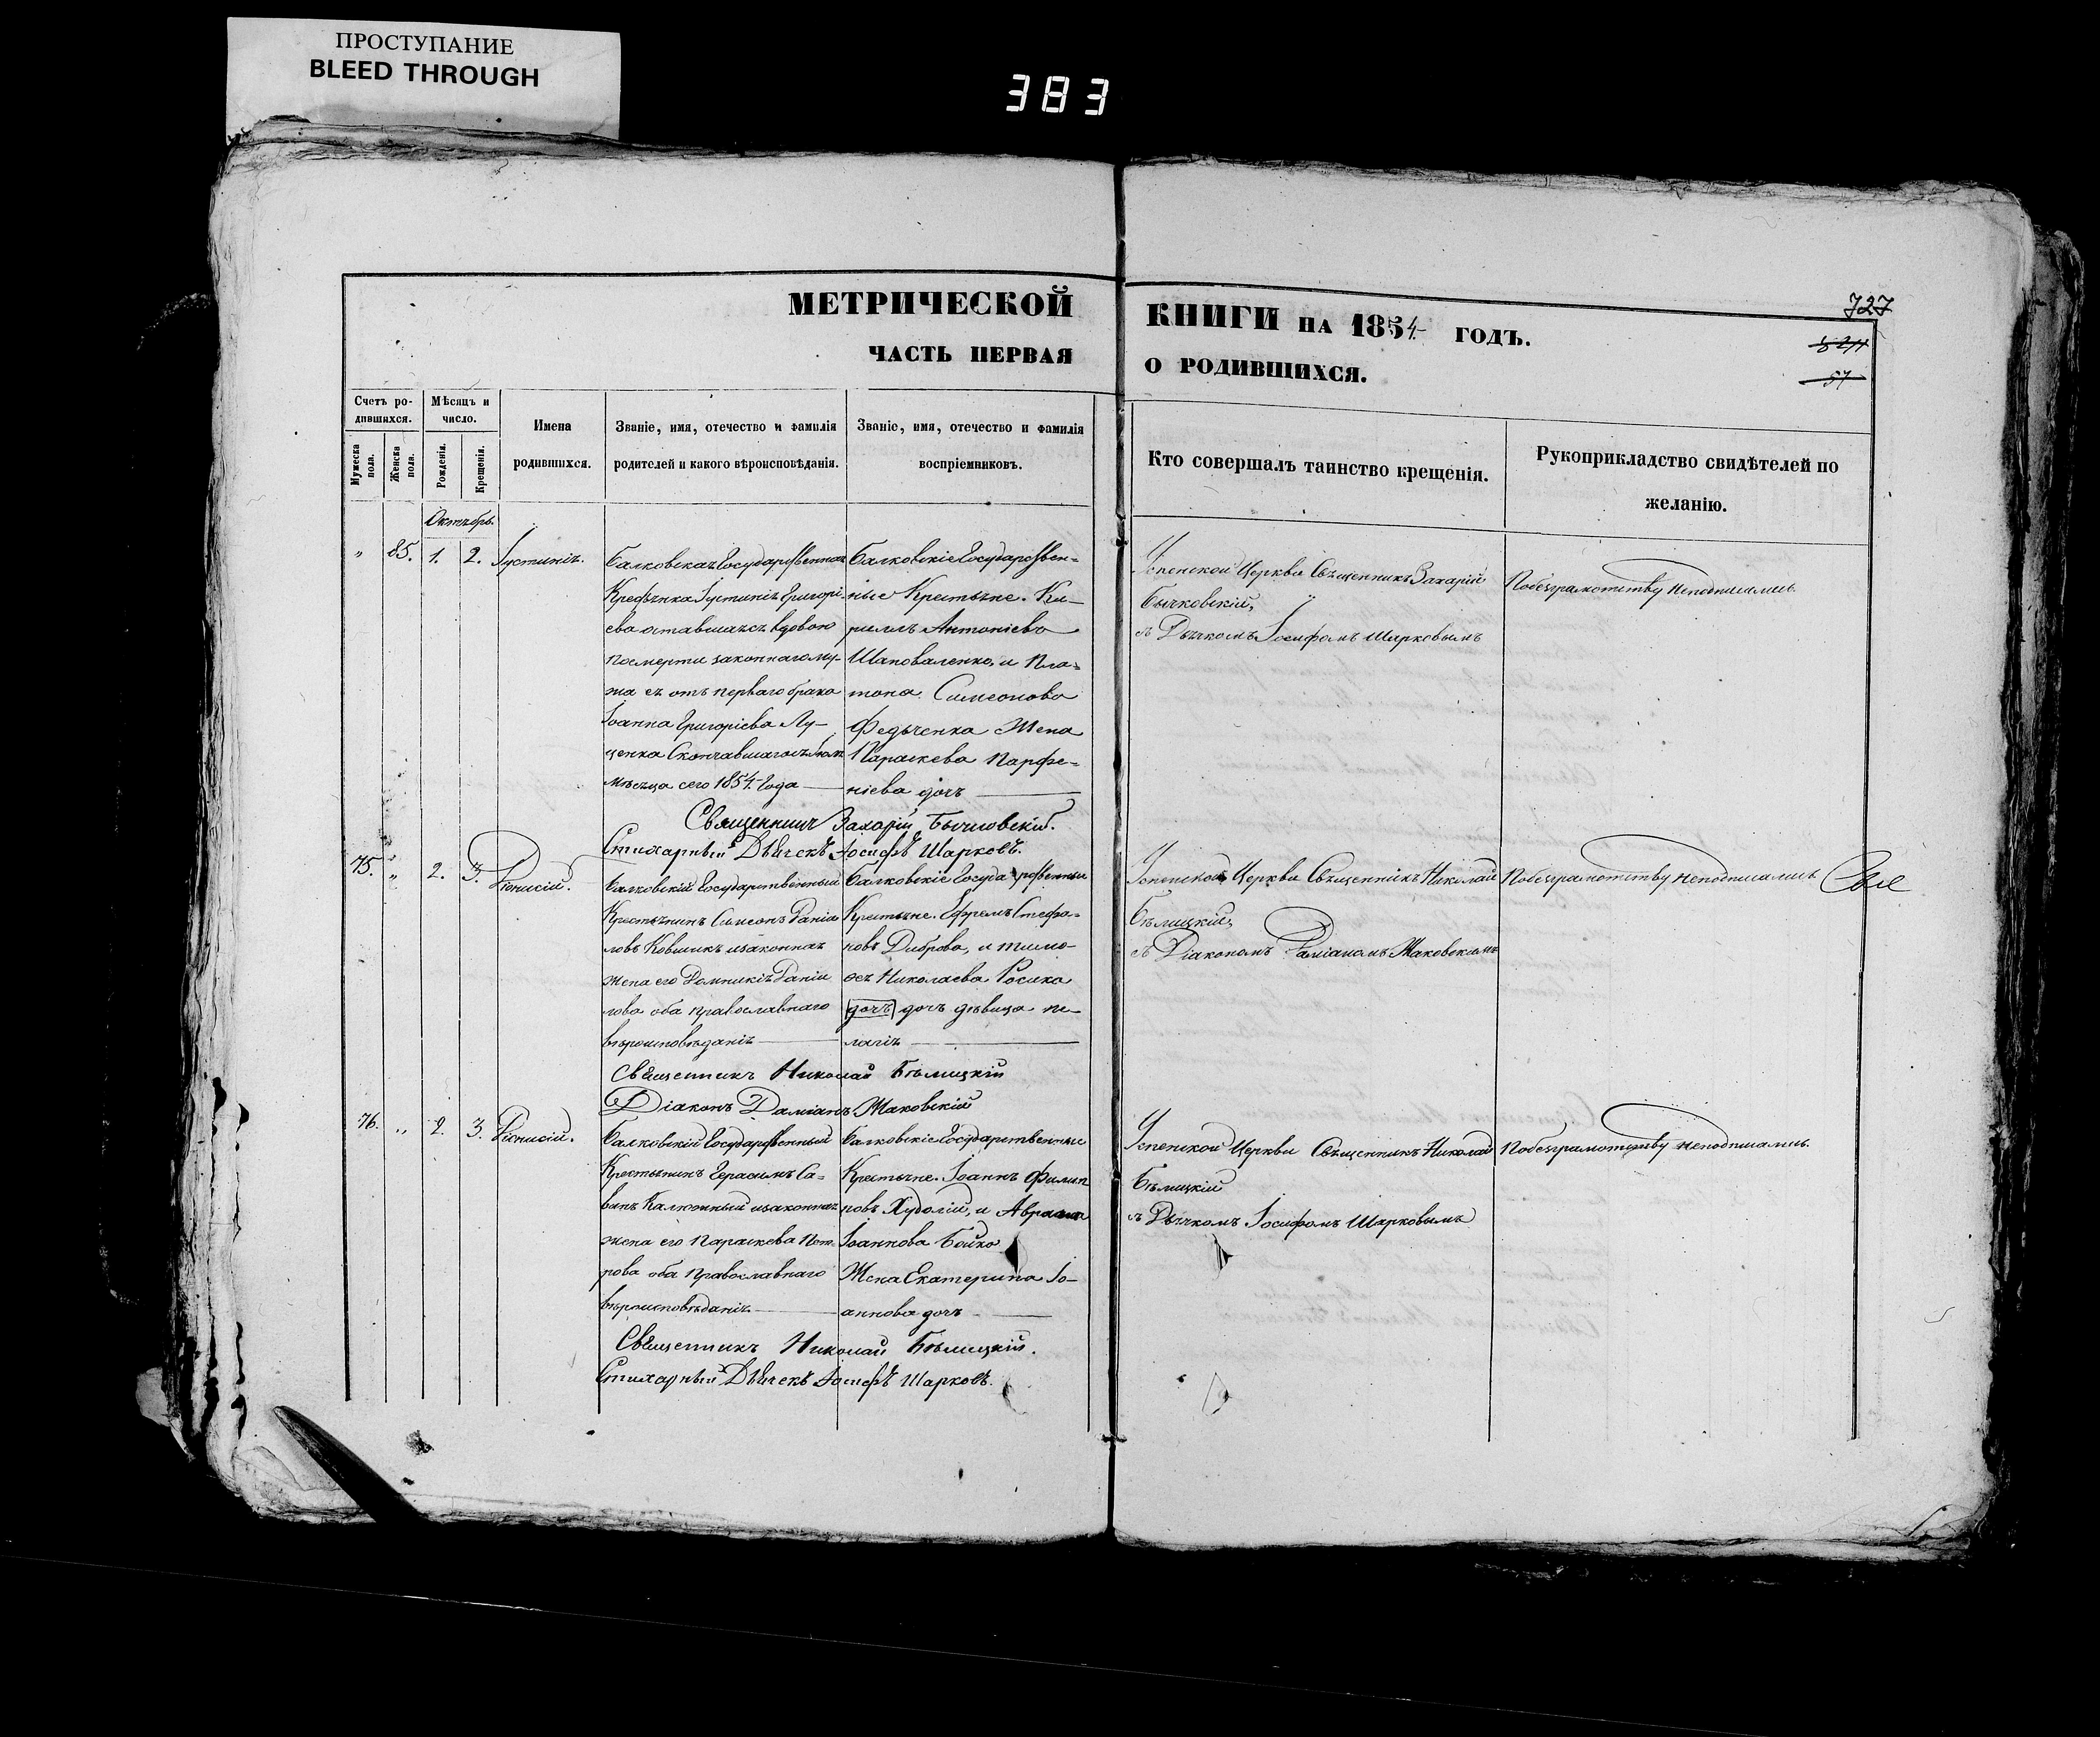 ПРОСТУПАНИЕ
BLEED THROUGH
383
МЕТРИЧЕСКОЙ КНИГИ НА 1854 ГОДЪ.
727
ЧАСТЬ ПЕРВАЯ О РОДИВШИХСЯ.
57
Счетъ родившихся.
Мужеска пола.
Женска пола.
Мѣсяцъ и число.
Рожденія.
Крещенія.
Имена родившихся.
Званіе, имя, отечество и фамилія
родителей и какого вѣроисповѣданія.
Званіе, имя, отечество и фамилія
воспріемниковъ.
Кто совершалъ таинство крещенія.
Рукоприкладство свидѣтелей по
желанію.
Октябрь.
" 85. 1. 2. Іустинія.
Балковская Государственная
Крестьянка Іустинія Григорі-
ева оставшаяся вдовою
посмерти законнагому-
жа ея отъ перваго брака
Іоанна Григоріева Лу-
ценка Скончавшагося
мѣсяца сего 1854. Года
Балковскіе Государствен-
ные Крестьяне. Ки-
рилъ Антоніевъ
Шаповаленко, и Пла-
тона Симеонова
Федяченка Жена
Параскева Парфе-
ніева дочь
Успенской Церкви Священникъ Захарій
Бычковскій,
съ Дьячкомъ Іосифомъ Шарковымъ
Побезграмотству неподписались.
Священникъ Захарій Бычковскій.
Стихарный Дьячекъ Іосифъ Шарковъ.
75. " 2. 3. Діонисій.
Балковскій Государственный
Крестьянинъ Симеонъ Даніи
ловъ Ковшикъ изаконная
жена его Домникія Даніи
лова оба православнаго
вѣроисповѣданія
Балковскіе Государственные
Крестьяне. Ефремъ Стефа-
новъ Диброва, и тимо-
ѳея Николаева Росика
дочь дочь дѣвица пе-
лагія
Успенской Церкви Священникъ Николай
Бѣлицкій,
съ Діакономъ Даміаномъ Жаковскимъ
Побезграмотству неподписались
Священникъ Николай Бѣлицкій
Діаконъ Даміанъ Жаковскій
76. " 2. 3. Діонисій.
Балковскій Государственный
Крестьянинъ Герасимъ Са-
винъ Калюжный изаконная
жена его Параскева Пет-
рова оба Православнаго
вѣроисповѣданія
Балковскіе Государственные
Крестьяне. Іоаннъ Филип
повъ Худолій, и Аврама
Іоаннова Бойко
Жена Екатерина Іо-
аннова дочь
Успенской Церкви Священникъ Николай
Бѣлицкій
съ Дьячкомъ Іосифомъ Шарковымъ
Побезграмотству неподписались.
Священникъ Николай Бѣлицкій.
Стихарный Дьячекъ Іосифъ Шарковъ.